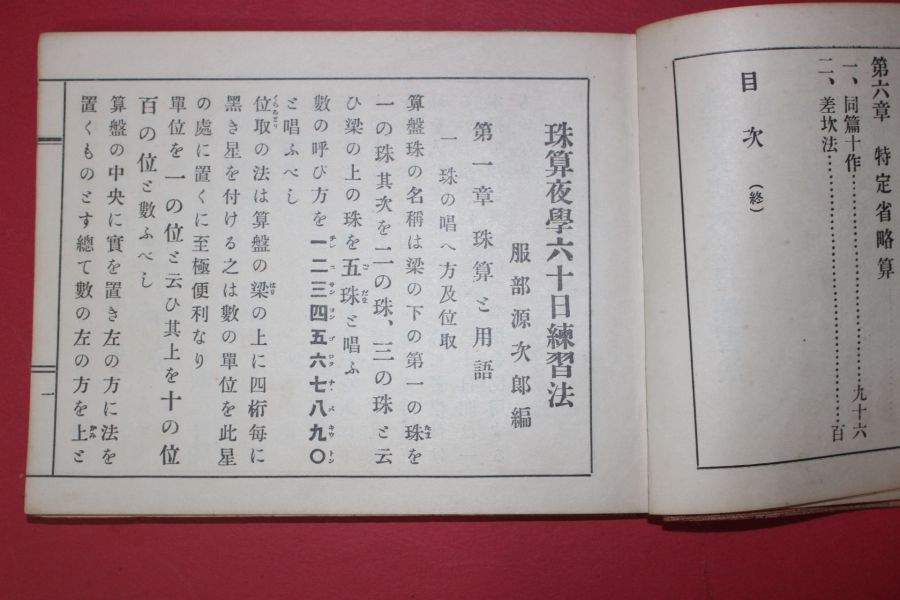 第六章 特定省略算
一、同篇十作……………………九十六
二、差坎法……………………………百
目次（終）
珠算夜學六十日練習法
服部源次郎編
第一章珠算と用語
一 珠の唱へ方及位取
算盤珠の名稱は梁の下の第一の珠を
一の珠其次を二の珠、三の珠と云
ひ梁の上の珠を五珠と唱ふ
數の呼び方を一二三四五六七八九〇
と唱ふべし
位取の法は算盤の梁の上に四桁每に
黑き星を付ける之は數の單位を此星
の處に置くに至極便利なり
單位を一の位と云ひ其上を十の位
百の位と數ふべし
算盤の中央に實を置き左の方に法を
置くものとす總て數の左の方を上と
一